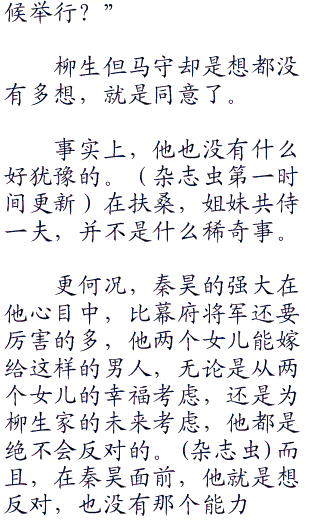 候举行？”
柳生但马守却是想都没
有多想，就是同意了。
事实上，他也没有什么
好犹豫的。（杂志虫第一时
间更新）在扶桑，姐妹共侍
一夫，并不是什么稀奇事。
更何况，秦昊的强大在
他心目中，比幕府将军还要
厉害的多，他两个女儿能嫁
给这样的男人，无论是从两
个女儿的幸福考虑，还是为
柳生家的未来考虑，他都是
绝不会反对的。(杂志虫)而
且，在秦昊面前，他就是想
反对，也没有那个能力